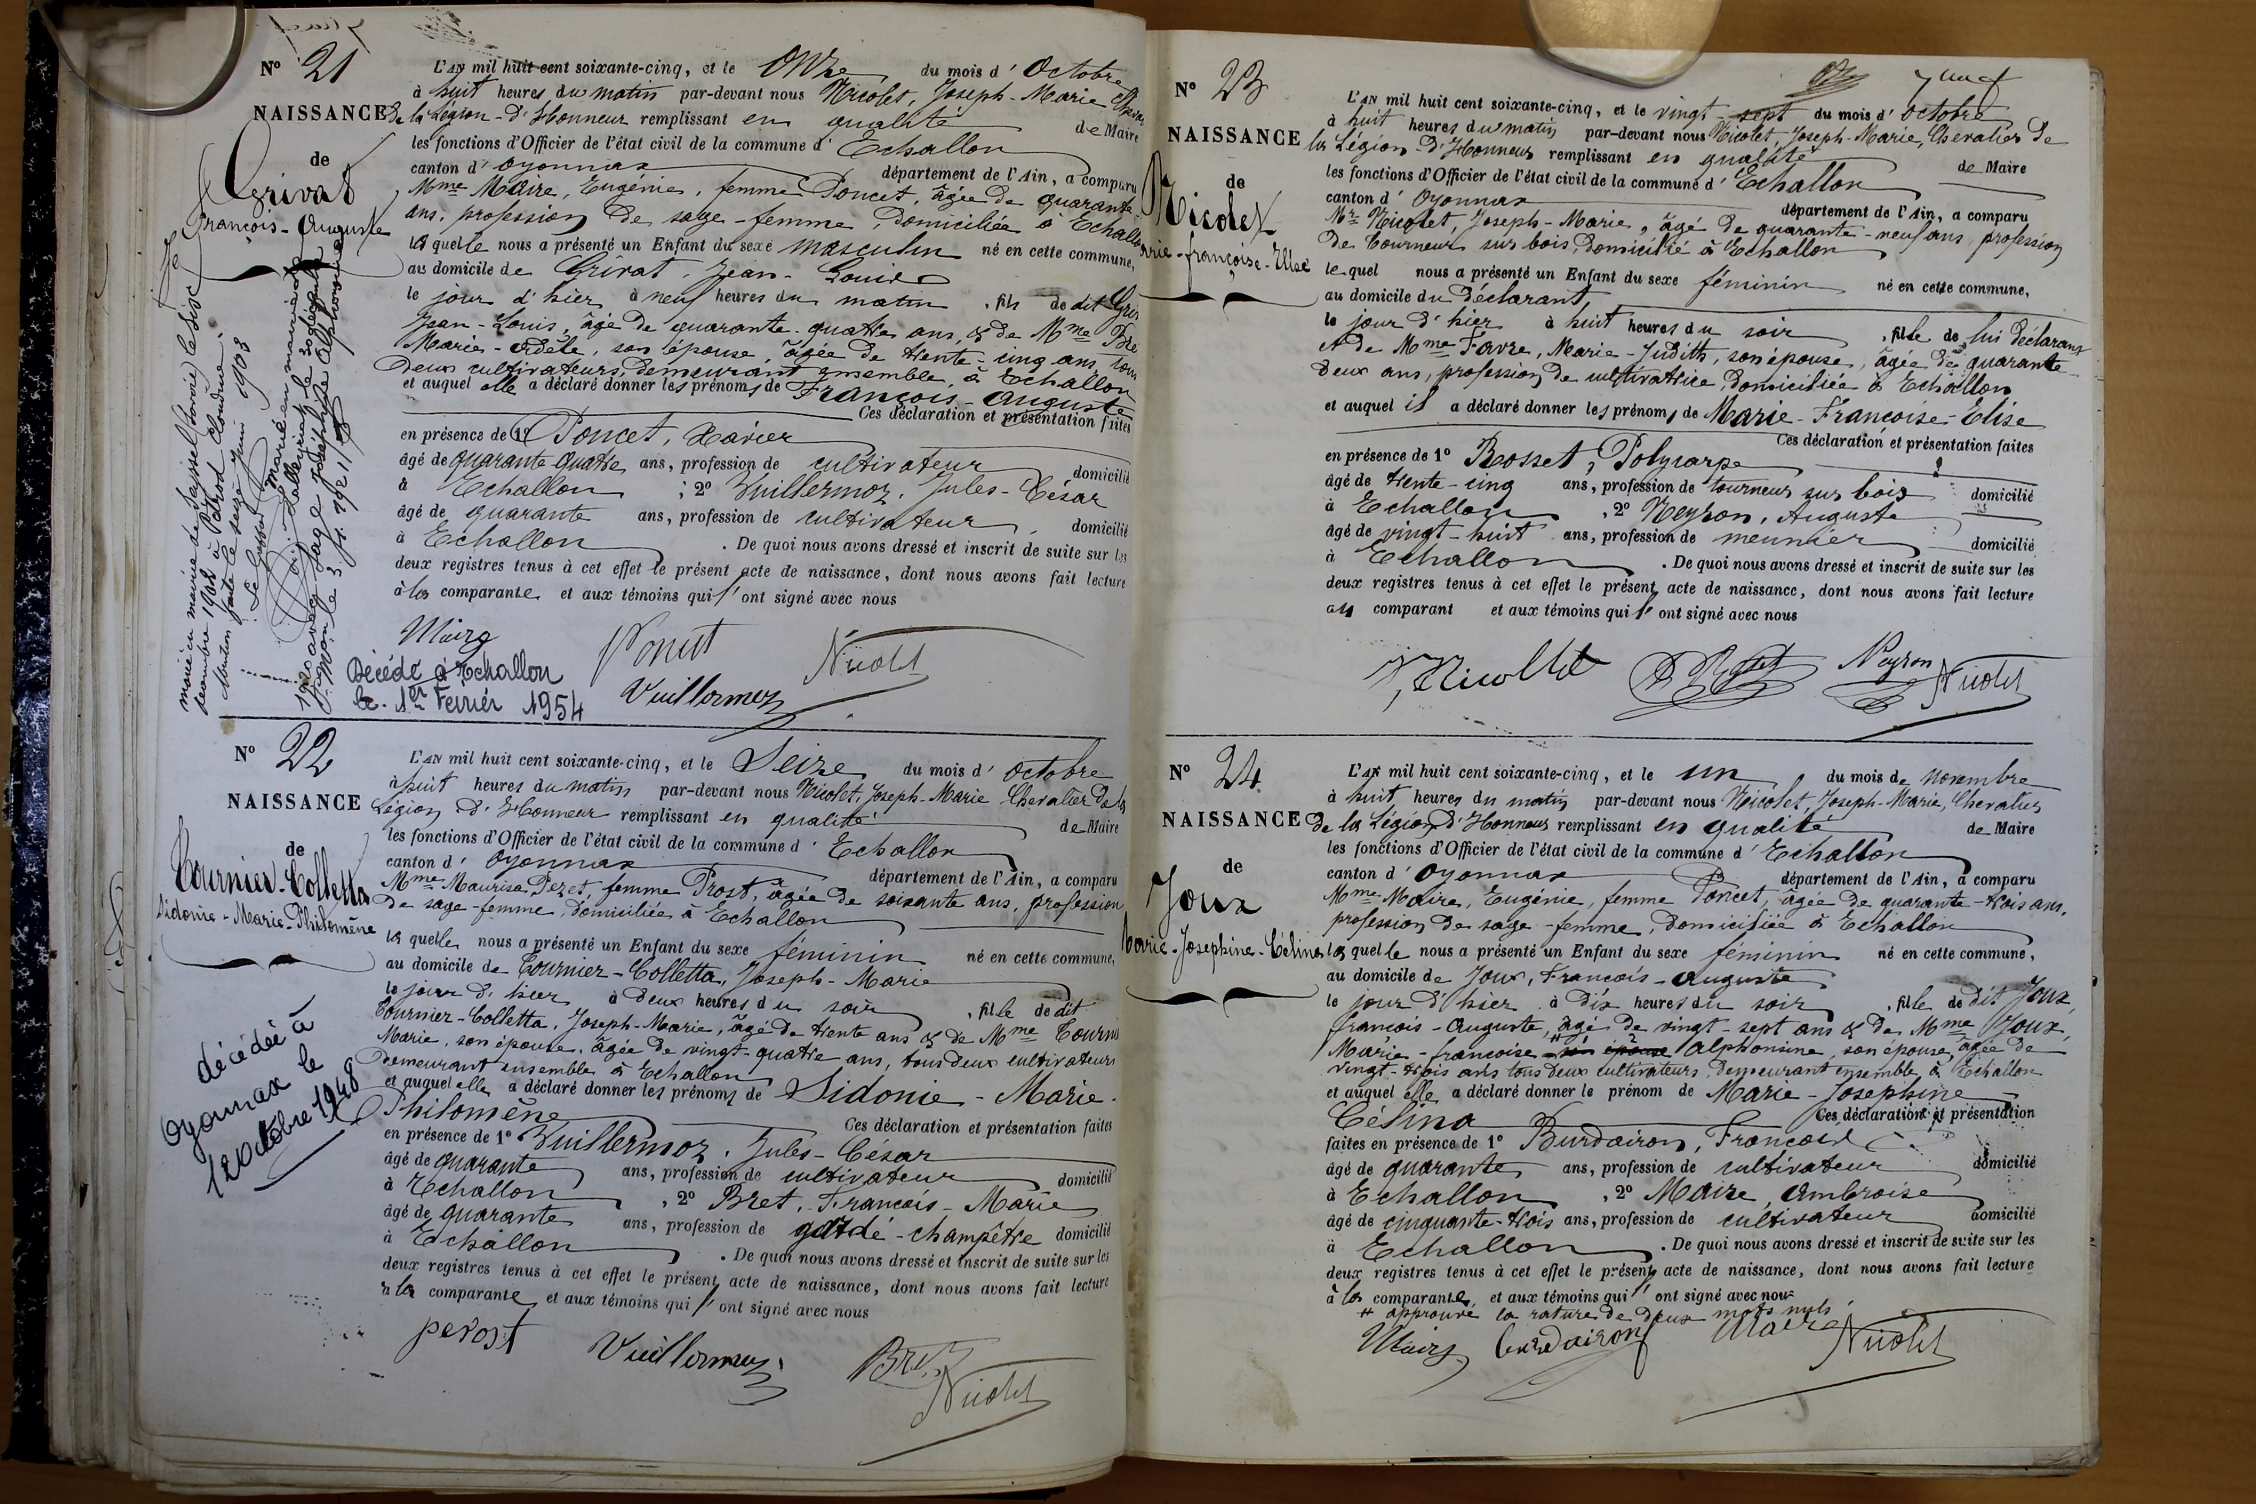 N° 21
NAISSANCE
de
Grivat
François-Auguste
L'AN mil huit cent soixante-cinq, et le Onze du mois d'Octobre
à huit heures du matin par-devant nous Nicolet, Joseph-Marie Chevalier
de la Légion-d'Honneur remplissant en qualité de Maire
les fonctions d'Officier de l'état civil de la commune d'Echallon
canton d'Oyonnax département de l'Ain, a comparu
Mme Maire, Eugénie, femme Poncet, âgée de quarante-
ans, profession de sage-femme, domiciliée à Echallon
laquelle nous a présenté un Enfant du sexe masculin né en cette commune,
au domicile de Grivat, Jean-Louis
le jour d'hier à neuf heures du matin, fils de dit
Jean-Louis, âgé de quarante-quatre ans, & de Mme
Marie-Adèle, son épouse, âgée de trente-cinq ans, tous
deux cultivateurs, demeurant ensemble, à Echallon
et auquel elle a déclaré donner les prénoms de François-Auguste
Ces déclaration et présentation faites
en présence de 1° Poncet, Xavier
âgé de quarante quatre ans, profession de cultivateur domicilié
à Echallon ; 2° Vuillermoz, Jules-César
âgé de quarante ans, profession de cultivateur, domicilié
à Echallon. De quoi nous avons dressé et inscrit de suite sur les
deux registres tenus à cet effet le présent acte de naissance, dont nous avons fait lecture
à la comparante et aux témoins qui l'ont signé avec nous
Maire Poncet Nicolet
Vuillermoz
Décédé à Echallon
le 1er Février 1954
N° 22
NAISSANCE
de
Tournier-Colletta
Sidonie-Marie-Philomène
L'AN mil huit cent soixante-cinq, et le Seize du mois d'Octobre
à huit heures du matin par-devant nous Nicolet, Joseph-Marie Chevalier de la
Légion d'Honneur remplissant en qualité de Maire
les fonctions d'Officier de l'état civil de la commune d'Echallon
canton d'Oyonnax département de l'Ain, a comparu
Mme Maurisa Peret, femme Prost, âgée de soixante ans, profession
de sage-femme, domiciliée à Echallon
laquelle nous a présenté un Enfant du sexe féminin né en cette commune,
au domicile de Tournier-Colletta, Joseph-Marie
le jour d'hier à deux heures du soir, fille de dit
Tournier-Colletta, Joseph-Marie, âgé de trente ans & de Mme Tournier
Marie, son épouse, âgée de vingt-quatre ans, tous deux cultivateurs
demeurant ensemble à Echallon
et auquel elle a déclaré donner les prénoms de Sidonie-Marie-
Philomène Ces déclaration et présentation faites
en présence de 1° Vuillermoz, Jules-César
âgé de quarante ans, profession de cultivateur domicilié
à Echallon, 2° Bret, François-Marie
âgé de quarante ans, profession de garde-champêtre domicilié
à Echallon. De quoi nous avons dressé et inscrit de suite sur les
deux registres tenus à cet effet le présent acte de naissance, dont nous avons fait lecture
à la comparante et aux témoins qui l'ont signé avec nous
perost Vuillermoz Bret
Nicolet
décédée à
Oyonnax le
12 Octobre 1948
N° 23
NAISSANCE
de
Nicolet
Marie-françoise-Elise
L'AN mil huit cent soixante-cinq, et le vingt-sept du mois d'Octobre
à huit heures du matin par-devant nous Nicolet, Joseph-Marie, Chevalier de
la Légion-d'Honneur remplissant en qualité de Maire
les fonctions d'Officier de l'état civil de la commune d'Echallon
canton d'Oyonnax département de l'Ain, a comparu
Mr Nicolet, Joseph-Marie, âgé de quarante-neuf ans, profession
de tourneur sur bois, domicilié à Echallon
lequel nous a présenté un Enfant du sexe féminin né en cette commune,
au domicile du déclarant
le jour d'hier à huit heures du soir, fille de lui déclarant
& de Mme Favre, Marie-Judith, son épouse, âgée de quarante-
deux ans, profession de cultivatrice, domiciliée à Echallon
et auquel il a déclaré donner les prénoms de Marie-Françoise-Elise
Ces déclaration et présentation faites
en présence de 1° Rosset, Polycarpe
âgé de trente-cinq ans, profession de tourneur sur bois domicilié
à Echallon, 2° Neyron, Auguste
âgé de vingt-huit ans, profession de meunier domicilié
à Echallon. De quoi nous avons dressé et inscrit de suite sur les
deux registres tenus à cet effet le présent acte de naissance, dont nous avons fait lecture
au comparant et aux témoins qui l'ont signé avec nous
Nicollet Rosset Neyron Nicolet
N° 24
NAISSANCE
de
Joux
Marie-Josephine-Célina
L'AN mil huit cent soixante-cinq, et le un du mois de novembre
à huit heures du matin par-devant nous Nicolet, Joseph-Marie, Chevalier
de la Légion d'Honneur remplissant en qualité de Maire
les fonctions d'Officier de l'état civil de la commune d'Echallon
canton d'Oyonnax département de l'Ain, a comparu
Mme Maire, Eugénie, femme Poncet, âgée de quarante-trois ans,
profession de sage-femme, domiciliée à Echallon
laquelle nous a présenté un Enfant du sexe féminin né en cette commune,
au domicile de Joux, François-Auguste
le jour d'hier à dix heures du soir, fille de dit Joux,
françois-Auguste, âgé de vingt-sept ans & de Mme Joux,
Marie-françoise # son épouse Alphonsine, son épouse, âgée de
vingt-trois ans tous deux cultivateurs, demeurant ensemble, à Echallon
et auquel elle a déclaré donner le prénom de Marie-Josephine
Célina Ces déclaration et présentation
faites en présence de 1° Burdairon, François
âgé de quarante ans, profession de cultivateur domicilié
à Echallon, 2° Maire, Ambroise
âgé de cinquante-trois ans, profession de cultivateur domicilié
à Echallon. De quoi nous avons dressé et inscrit de suite sur les
deux registres tenus à cet effet le présent acte de naissance, dont nous avons fait lecture
à la comparante et aux témoins qui l'ont signé avec nous
# approuvé la rature de deux mots nuls
Maire Burdairon Maire Nicolet